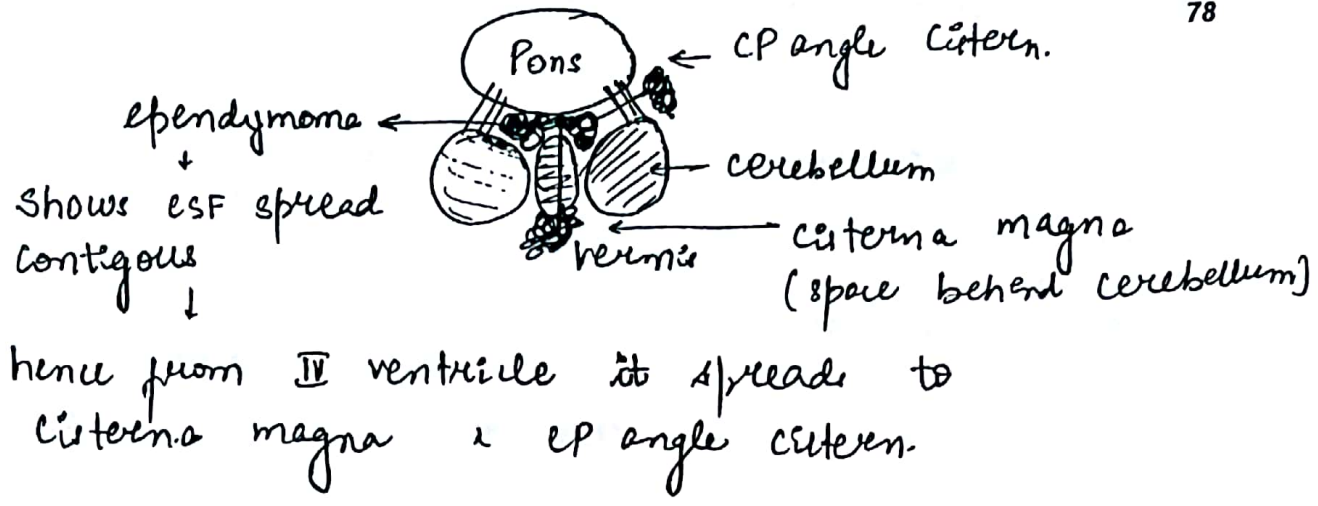 78
Pons
← CP angle Cistern.
ependymoma ←
↓
Shows CSF spread
contigous
↓
← cerebellum
vermis
← cisterna magna
(space behend cerebellum)
hence from IV ventricle it spreads to
cisterna magna & CP angle cistern.